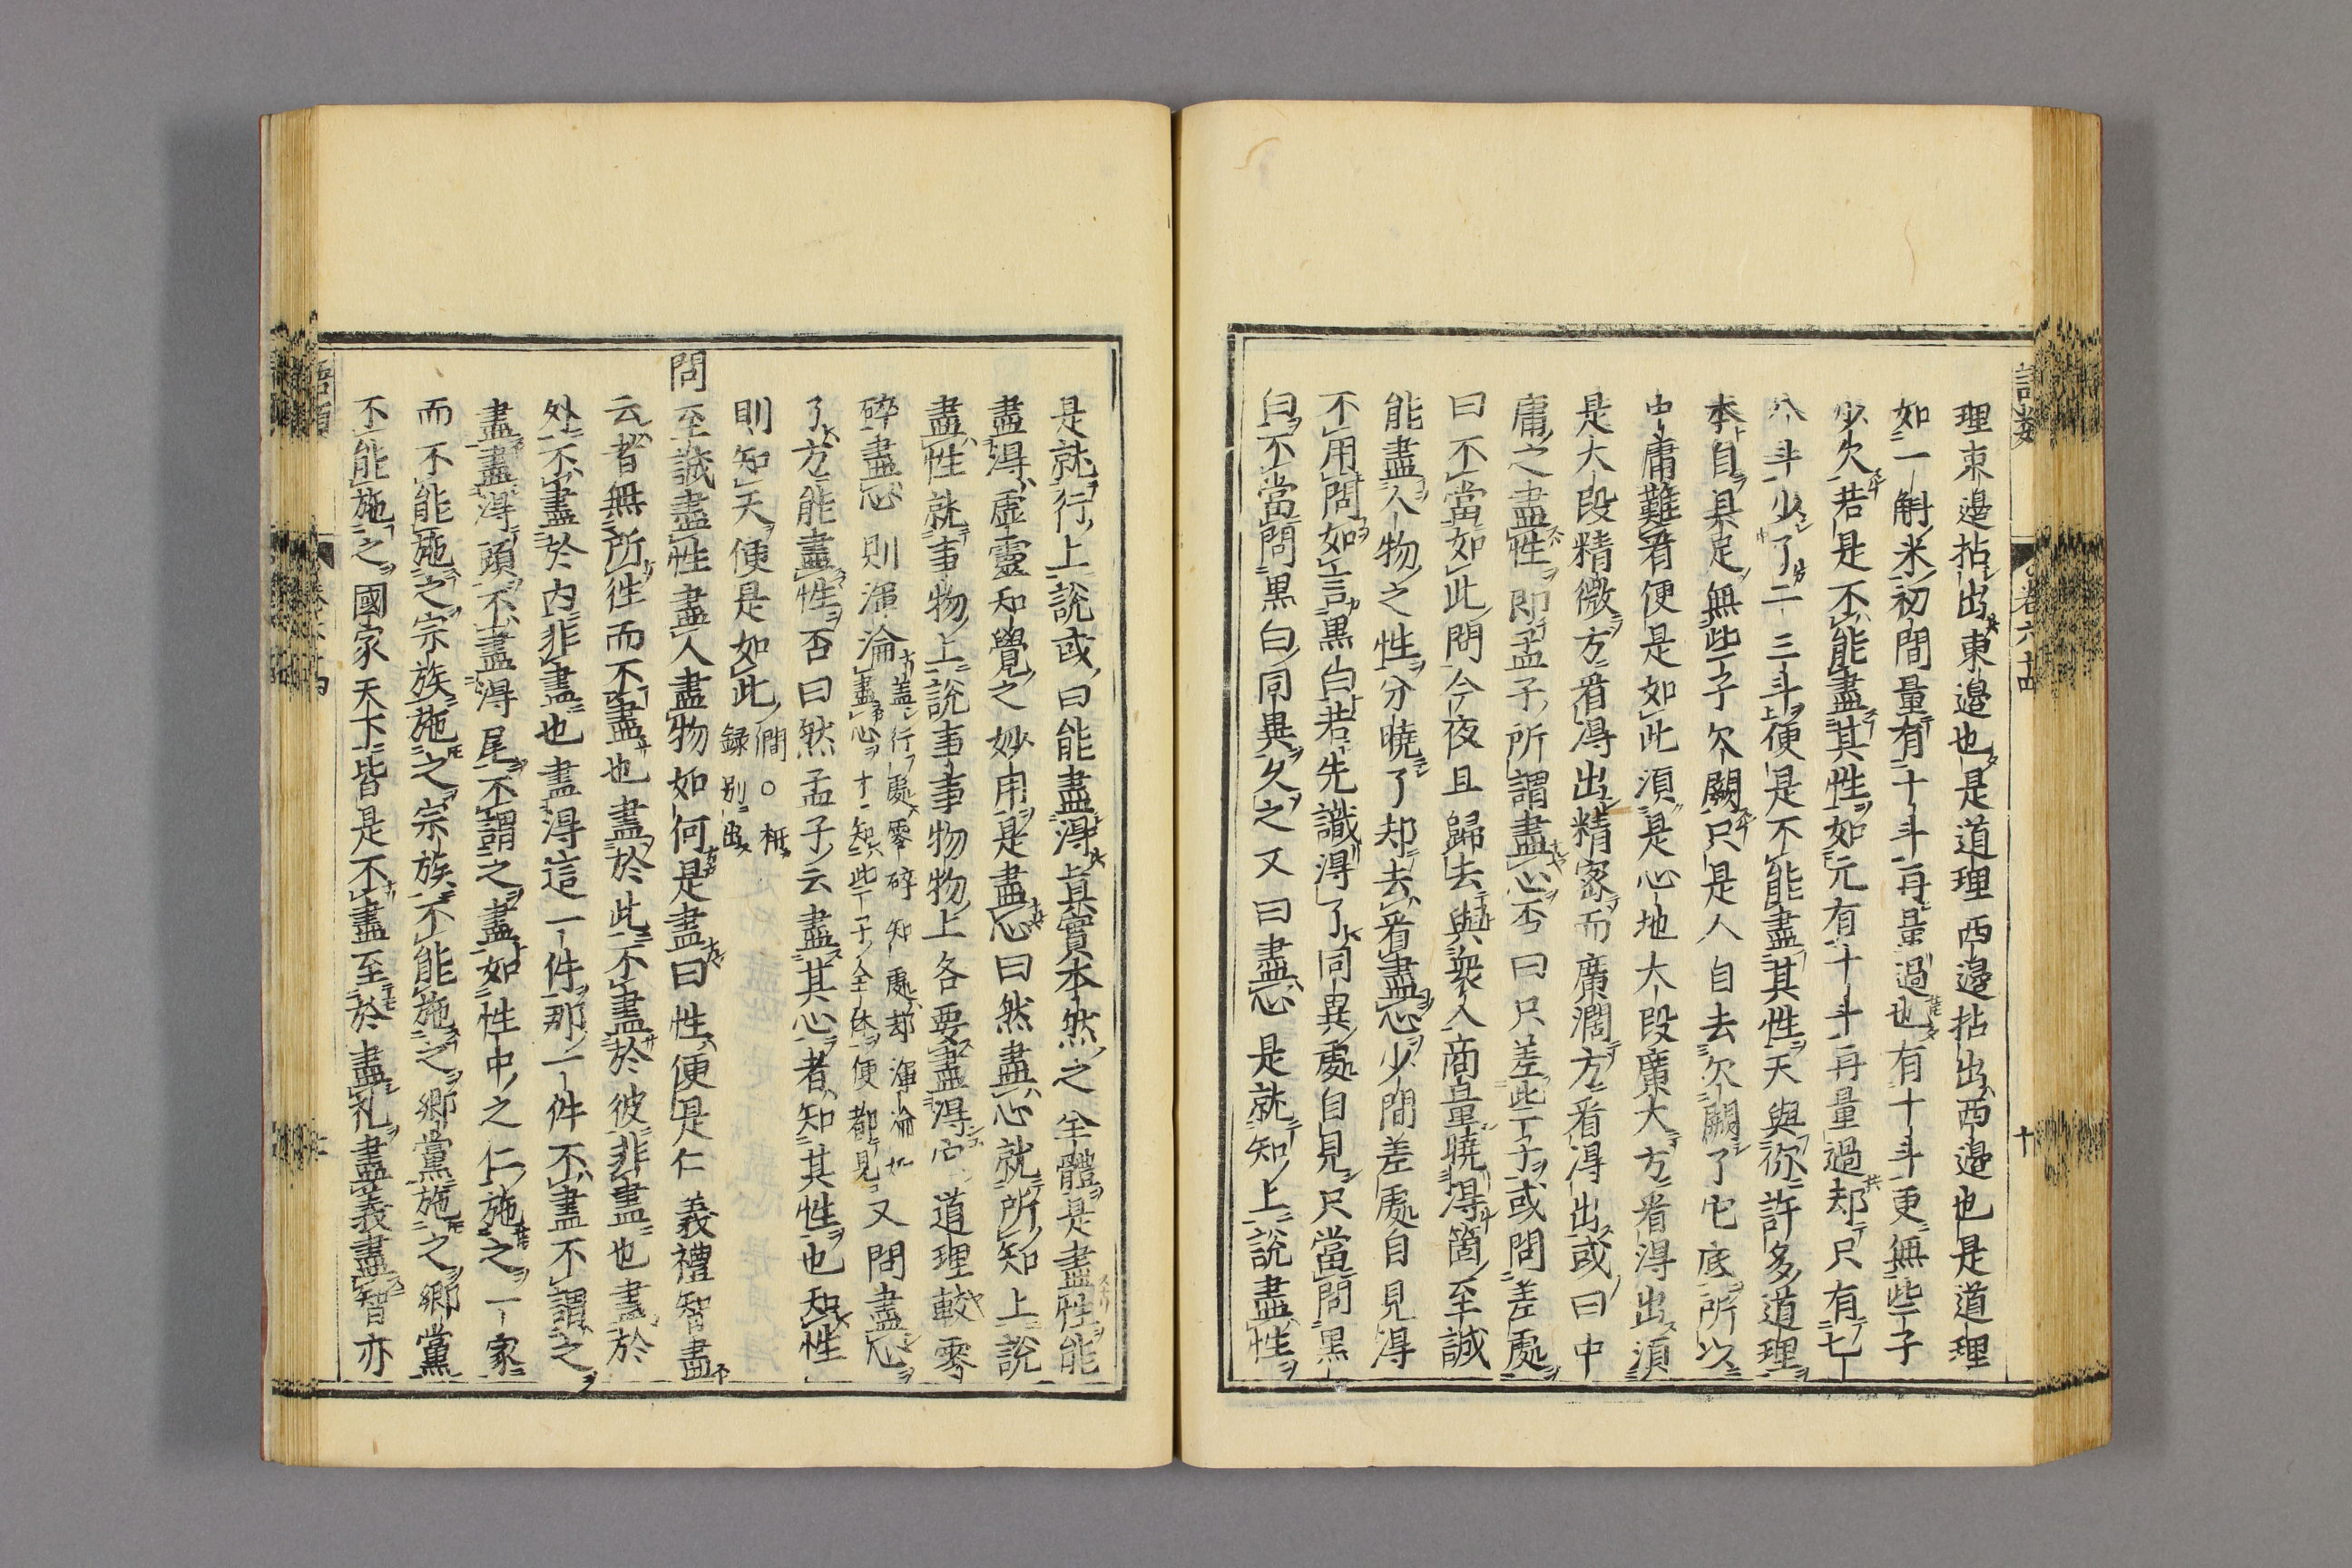 語類
卷六十四
十
理東邊拈出東邊也是道理西邊拈出西邊也是道理
如一斛米初間量有十斗再量過也有十斗更無些子
少欠若是不能盡其性如元有十斗再量過却只有七
八斗少了二三斗便是不能盡其性天與你許多道理
本自具足無些子欠闕只是人自去欠闕了它底所以
中庸難看便是如此須是心地大段廣大方看得出須
是大段精微方看得出精密而廣濶方看得出或曰中
庸之盡性即孟子所謂盡心否曰只差些子或問差處
曰不當如此問今夜且歸去與衆人商量曉得箇至誠
能盡人物之性分曉了却去看盡心少間差處自見得
不用問如言黒白若先識得了同異處自見只當問黒
白不當問黒白同異久之又曰盡心是就知上說盡性
是就行上說或曰能盡得真實本然之全體是盡性能
盡得虛靈知覺之妙用是盡心曰然盡心就所知上說
盡性就事物上說事事物物上各要盡得它道理較零
碎盡心則渾淪盖行處零碎知處却渾淪如盡心才知些子全体便都見又問盡心
了方能盡性否曰然孟子云盡其心者知其性也知性
則知天便是如此㵎○柄録別出
問至誠盡性盡人盡物如何是盡曰性便是仁義禮智盡
云者無所徃而不盡也盡於此不盡於彼非盡也盡於
外不盡於内非盡也盡得這一件那一件不盡不謂之
盡盡得頭不盡得尾不謂之盡如性中之仁施之一家
而不能施之宗族施之宗族不能施之鄉黨施之鄉黨
不能施之國家天下皆是不盡至於盡礼盡義盡智亦